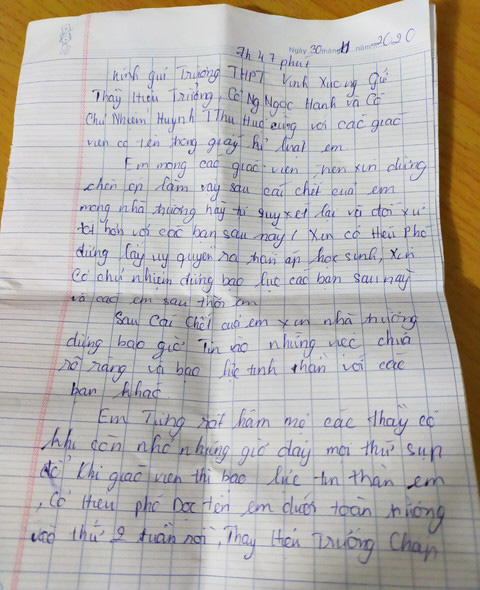 7h 47 phút
Ngày 30 tháng 11 năm 2020
kính gửi Trường THPT Vĩnh Xương Gửi
Thầy Hiệu Trưởng, Cô Ng Ngọc Hạnh và Cô
Chủ Nhiệm Huỳnh T Thu Huệ cùng với các giáo
viên có tên trong giấy kỉ luật em
Em mong các giáo viên nên xin đừng
chèn ép làm vậy sau cái chết của em
mong nhà trường hãy tự suy xét lại và đối xử
tốt hơn với các bạn sau này! Xin cô Hiệu Phó
đừng lấy uy quyền ra đàn áp học sinh, xin
Cô chủ nhiệm đừng bạo lực các bạn sau này
và các em sau thời em
Sau Cái Chết của em xin nhà trường
đừng bao giờ Tin vào những việc chưa
rõ ràng và bạo lực tinh thần với các
bạn khác.
Em Từng rất hâm mộ các thầy cô
khi còn nhỏ nhưng giờ đây mọi thứ sụp
đổ khi giáo viên thì bạo lực tin thần em
, Cô Hiệu phó Đọc tên em dưới toàn trường
vào thứ 2 tuần rồi, Thầy Hiệu Trưởng Chấp